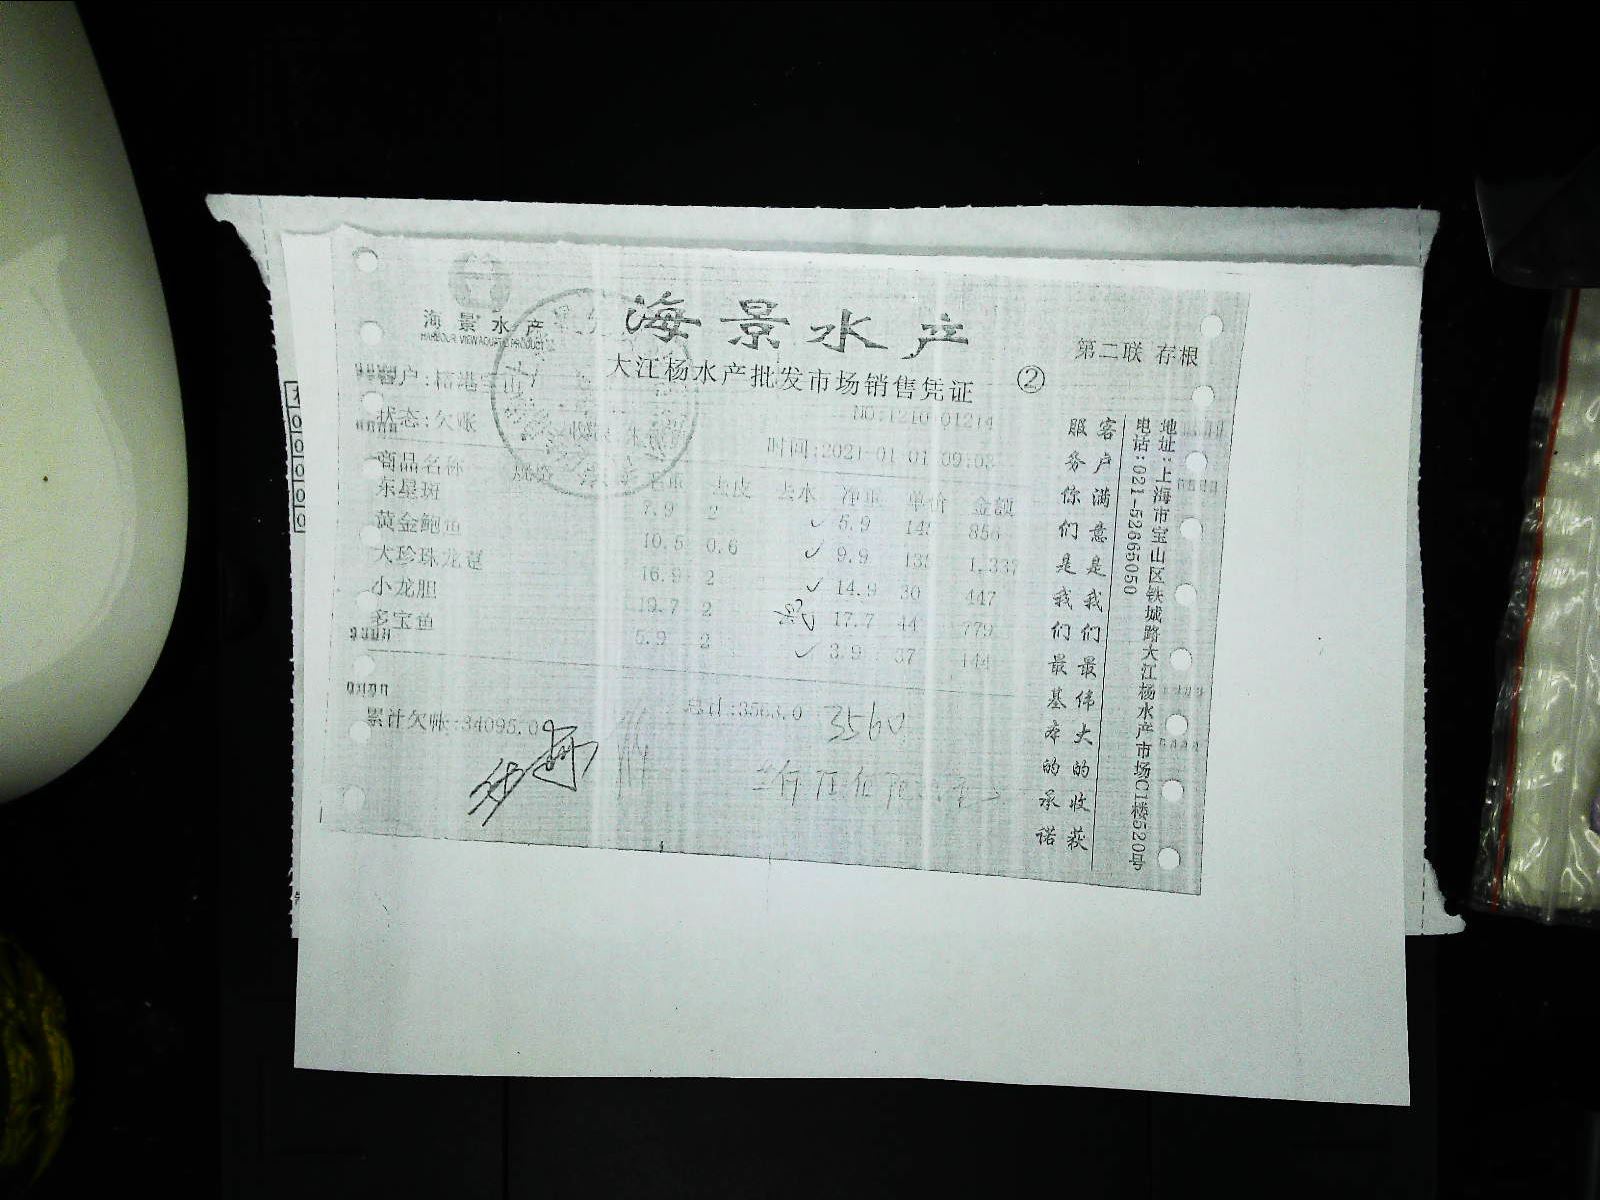 海景水产
海景水产
大江杨水产批发市场销售凭证 ②
第二联 存根
状态:欠账
NO:1210 01214
时间:2021-01-01 09:03
商品名称 去皮 去水 净重 单价 金额
东星斑 7.9 2 5.9 145 856
黄金鲍鱼 10.5 0.6 9.9 135 1,337
大珍珠龙趸 16.9 2 14.9 30 447
小龙胆 19.7 2 17.7 44 779
多宝鱼 5.9 2 3.9 37 144
累计欠帐:34095.0 总计:3563.0 3560
客户满意是我们最伟大的收获
服务你们是我们最基本的承诺
地址:上海市宝山区铁城路大江杨水产市场C1楼520号
电话:021-52665050